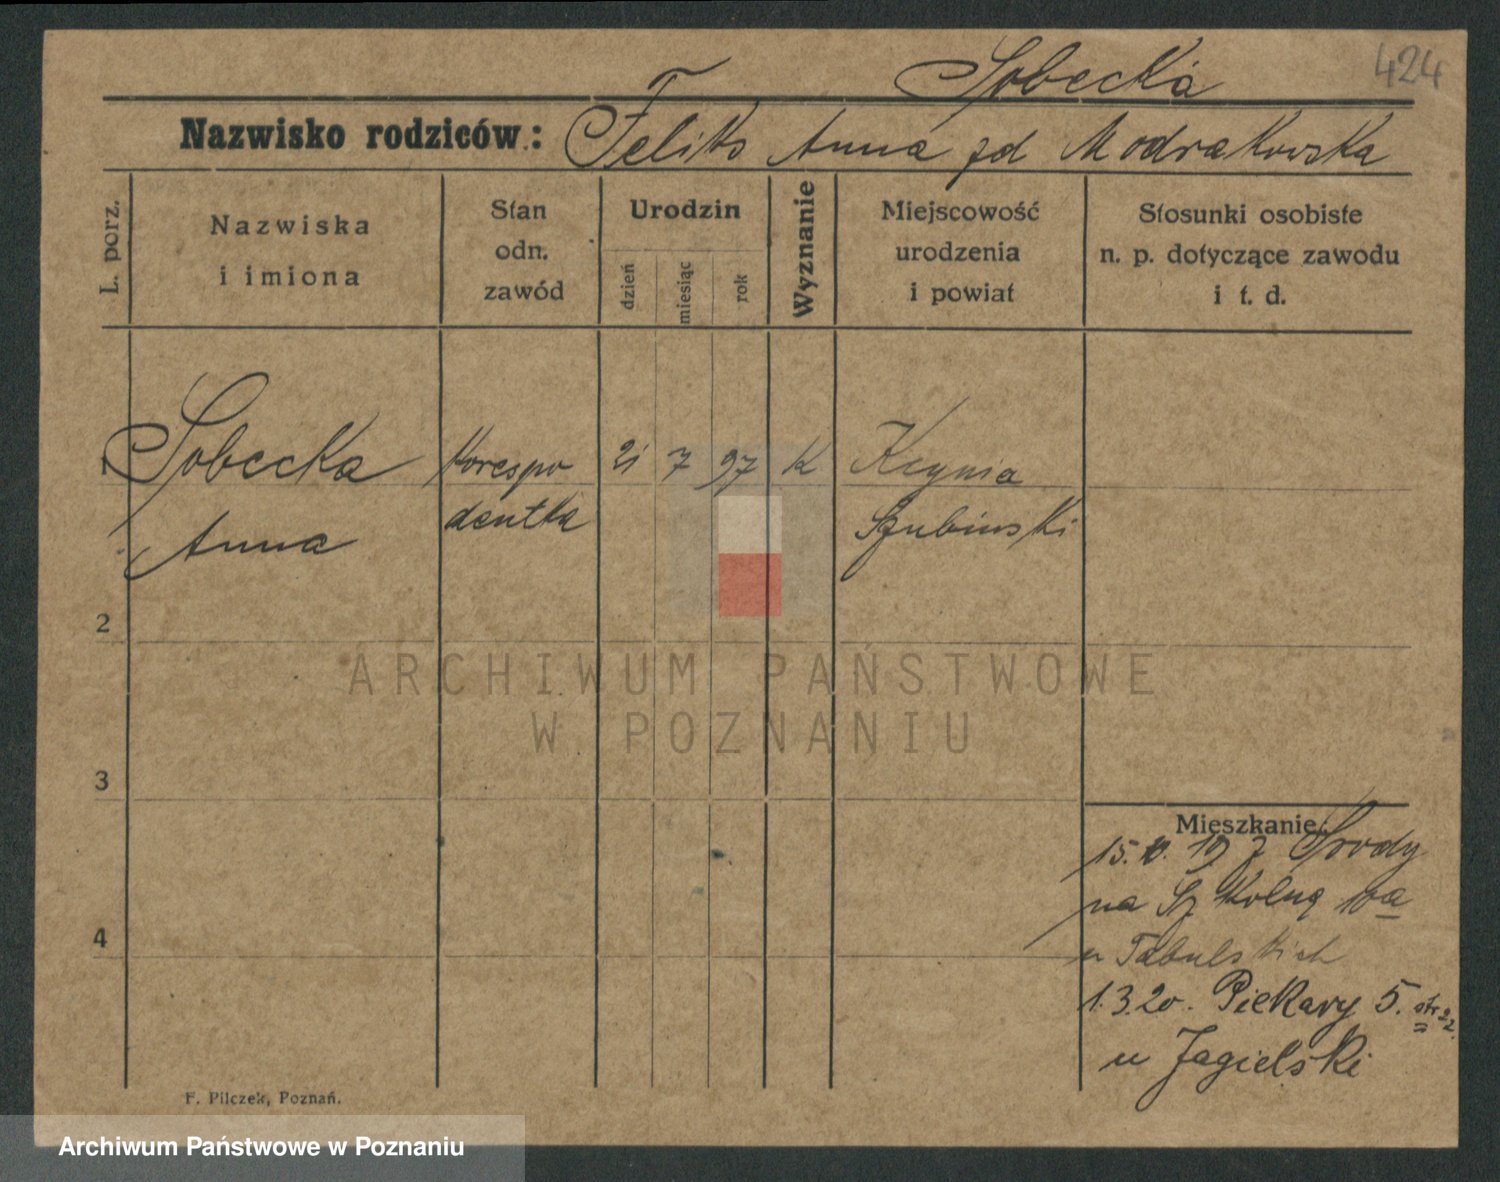 424
Sobecka
Nazwisko rodziców: Feliks Anna zd Modrakowska
L. porz.
Nazwiska
i imiona
Stan
odn.
zawód
Urodzin
dzień
miesiąc
rok
Wyznanie
Miejscowość
urodzenia
i powiat
Stosunki osobiste
n. p. dotyczące zawodu
i t. d.
1 Sobecka korespo 21 7 97 k Kcynia
Anna dentka Szubinski
2
ARCHIWUM PAŃSTWOWE
W POZNANIU
3
Mieszkanie:
15.10.19 z Srody
na Szkolną 10a
4
u Tabulskich
1.3.20. Piekary 5. str 22.
u Jagielski
F. Pilczek, Poznań.
Archiwum Państwowe w Poznaniu